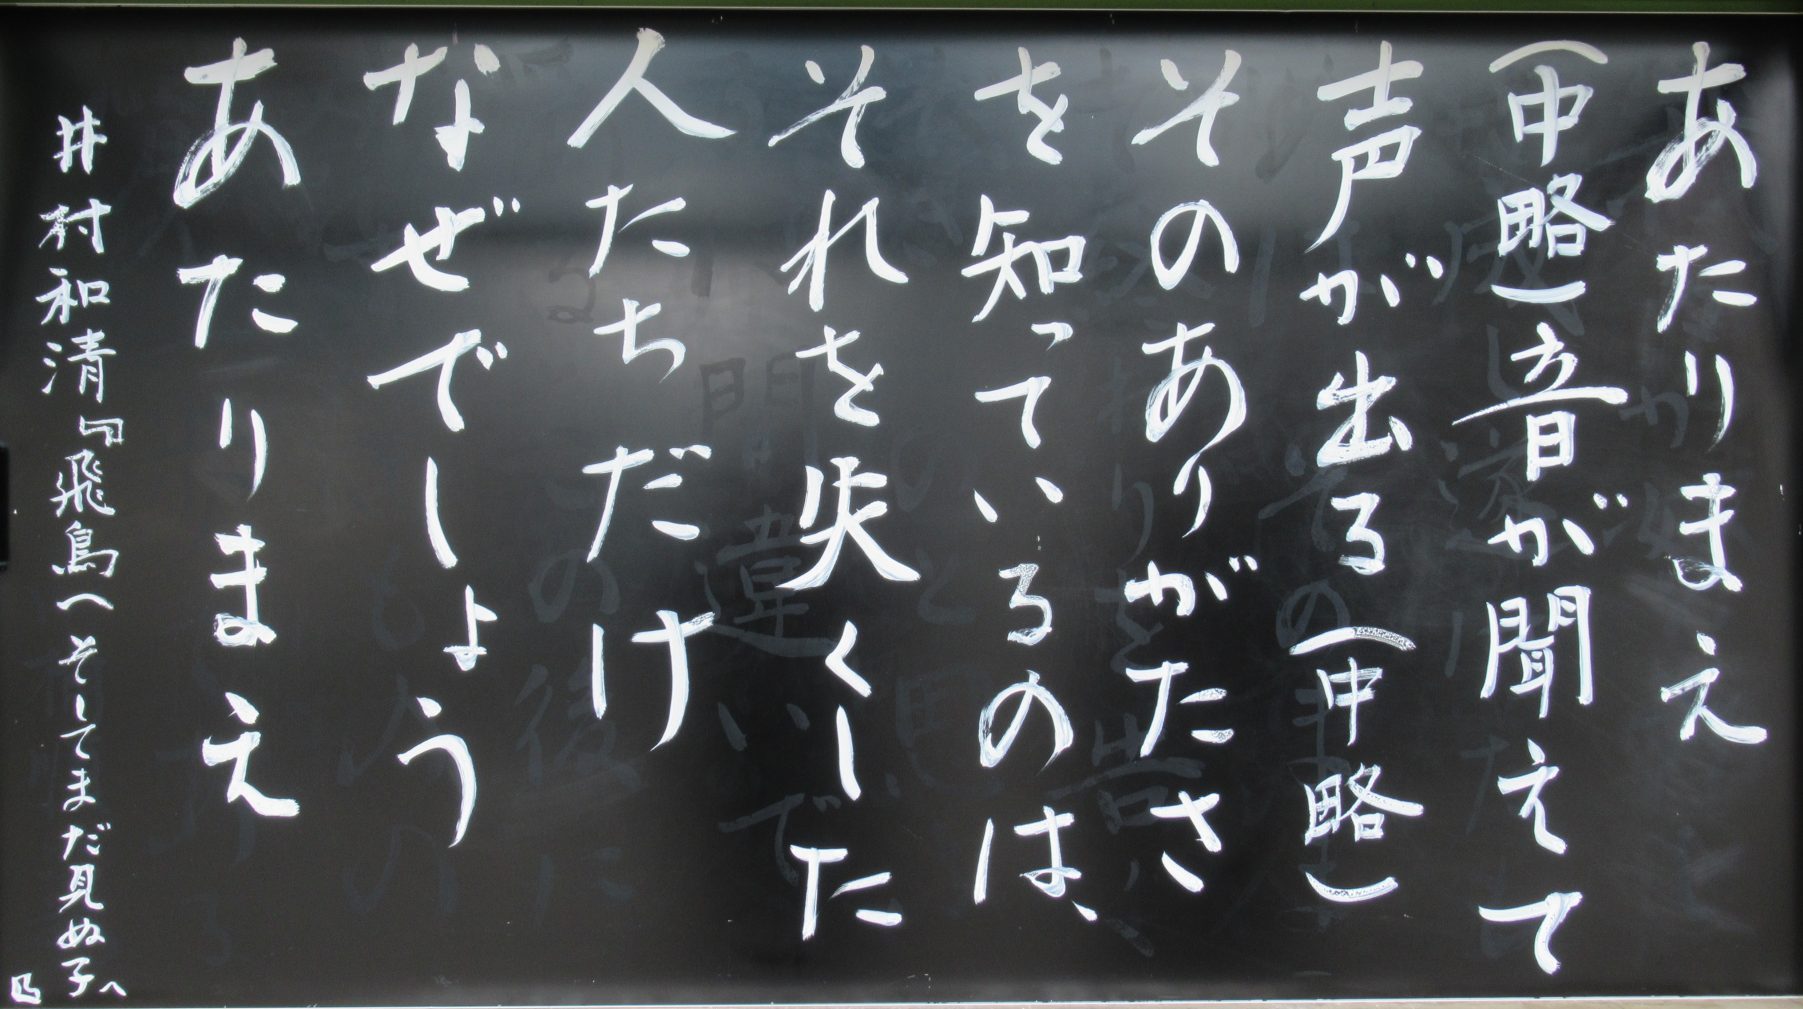 あたりまえ
(中略)音が聞えて
声が出る(中略)
そのありがたさ
を知っているのは、
それを失くした
人たちだけ
なぜでしょう
あたりまえ
井村和清『飛鳥へそしてまだ見ぬ子へ』